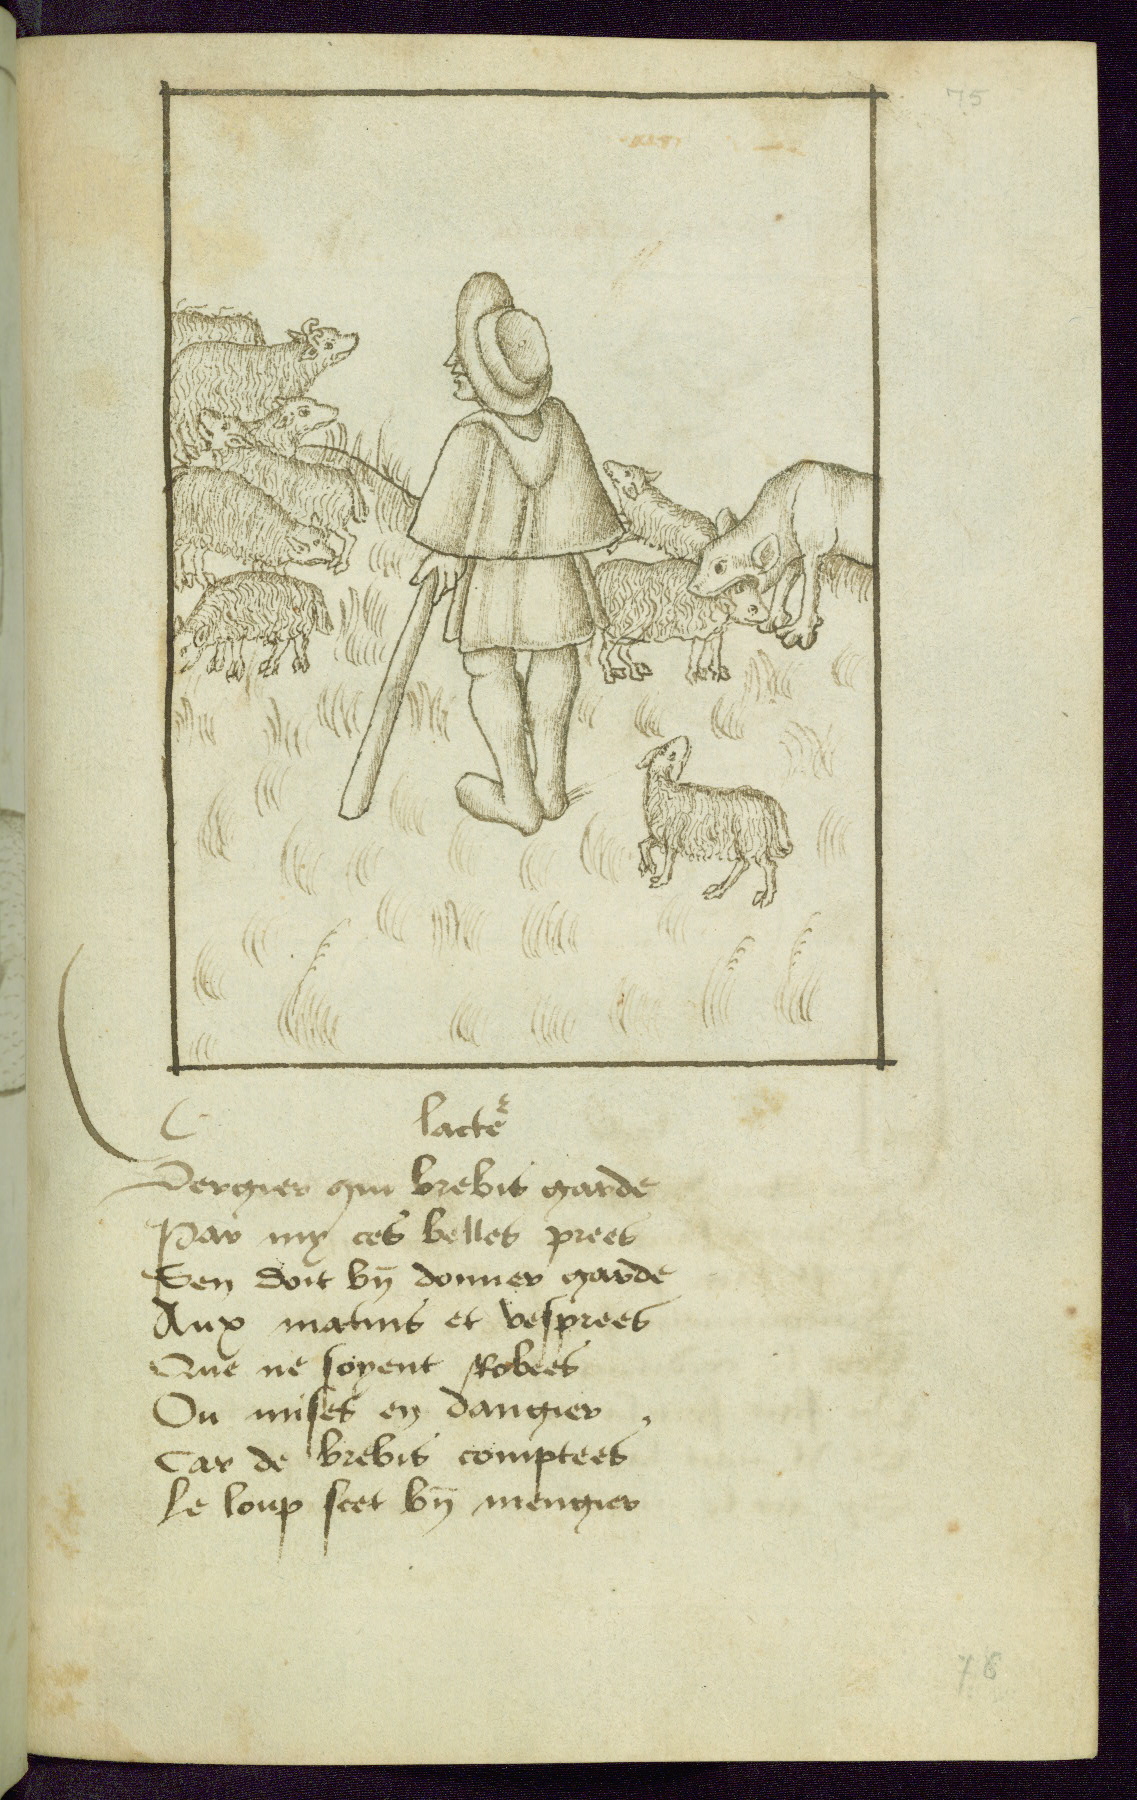 75
lacteᷣ
Bergier qui brebis garde
Par my ces belles prees
Sen doit bn̄ donner garde
Aux matins et vesprees
Que ne soyent Robees
Ou mises en dangier
Car de brebis comptees
Le loup scet bn̄ mengier
78